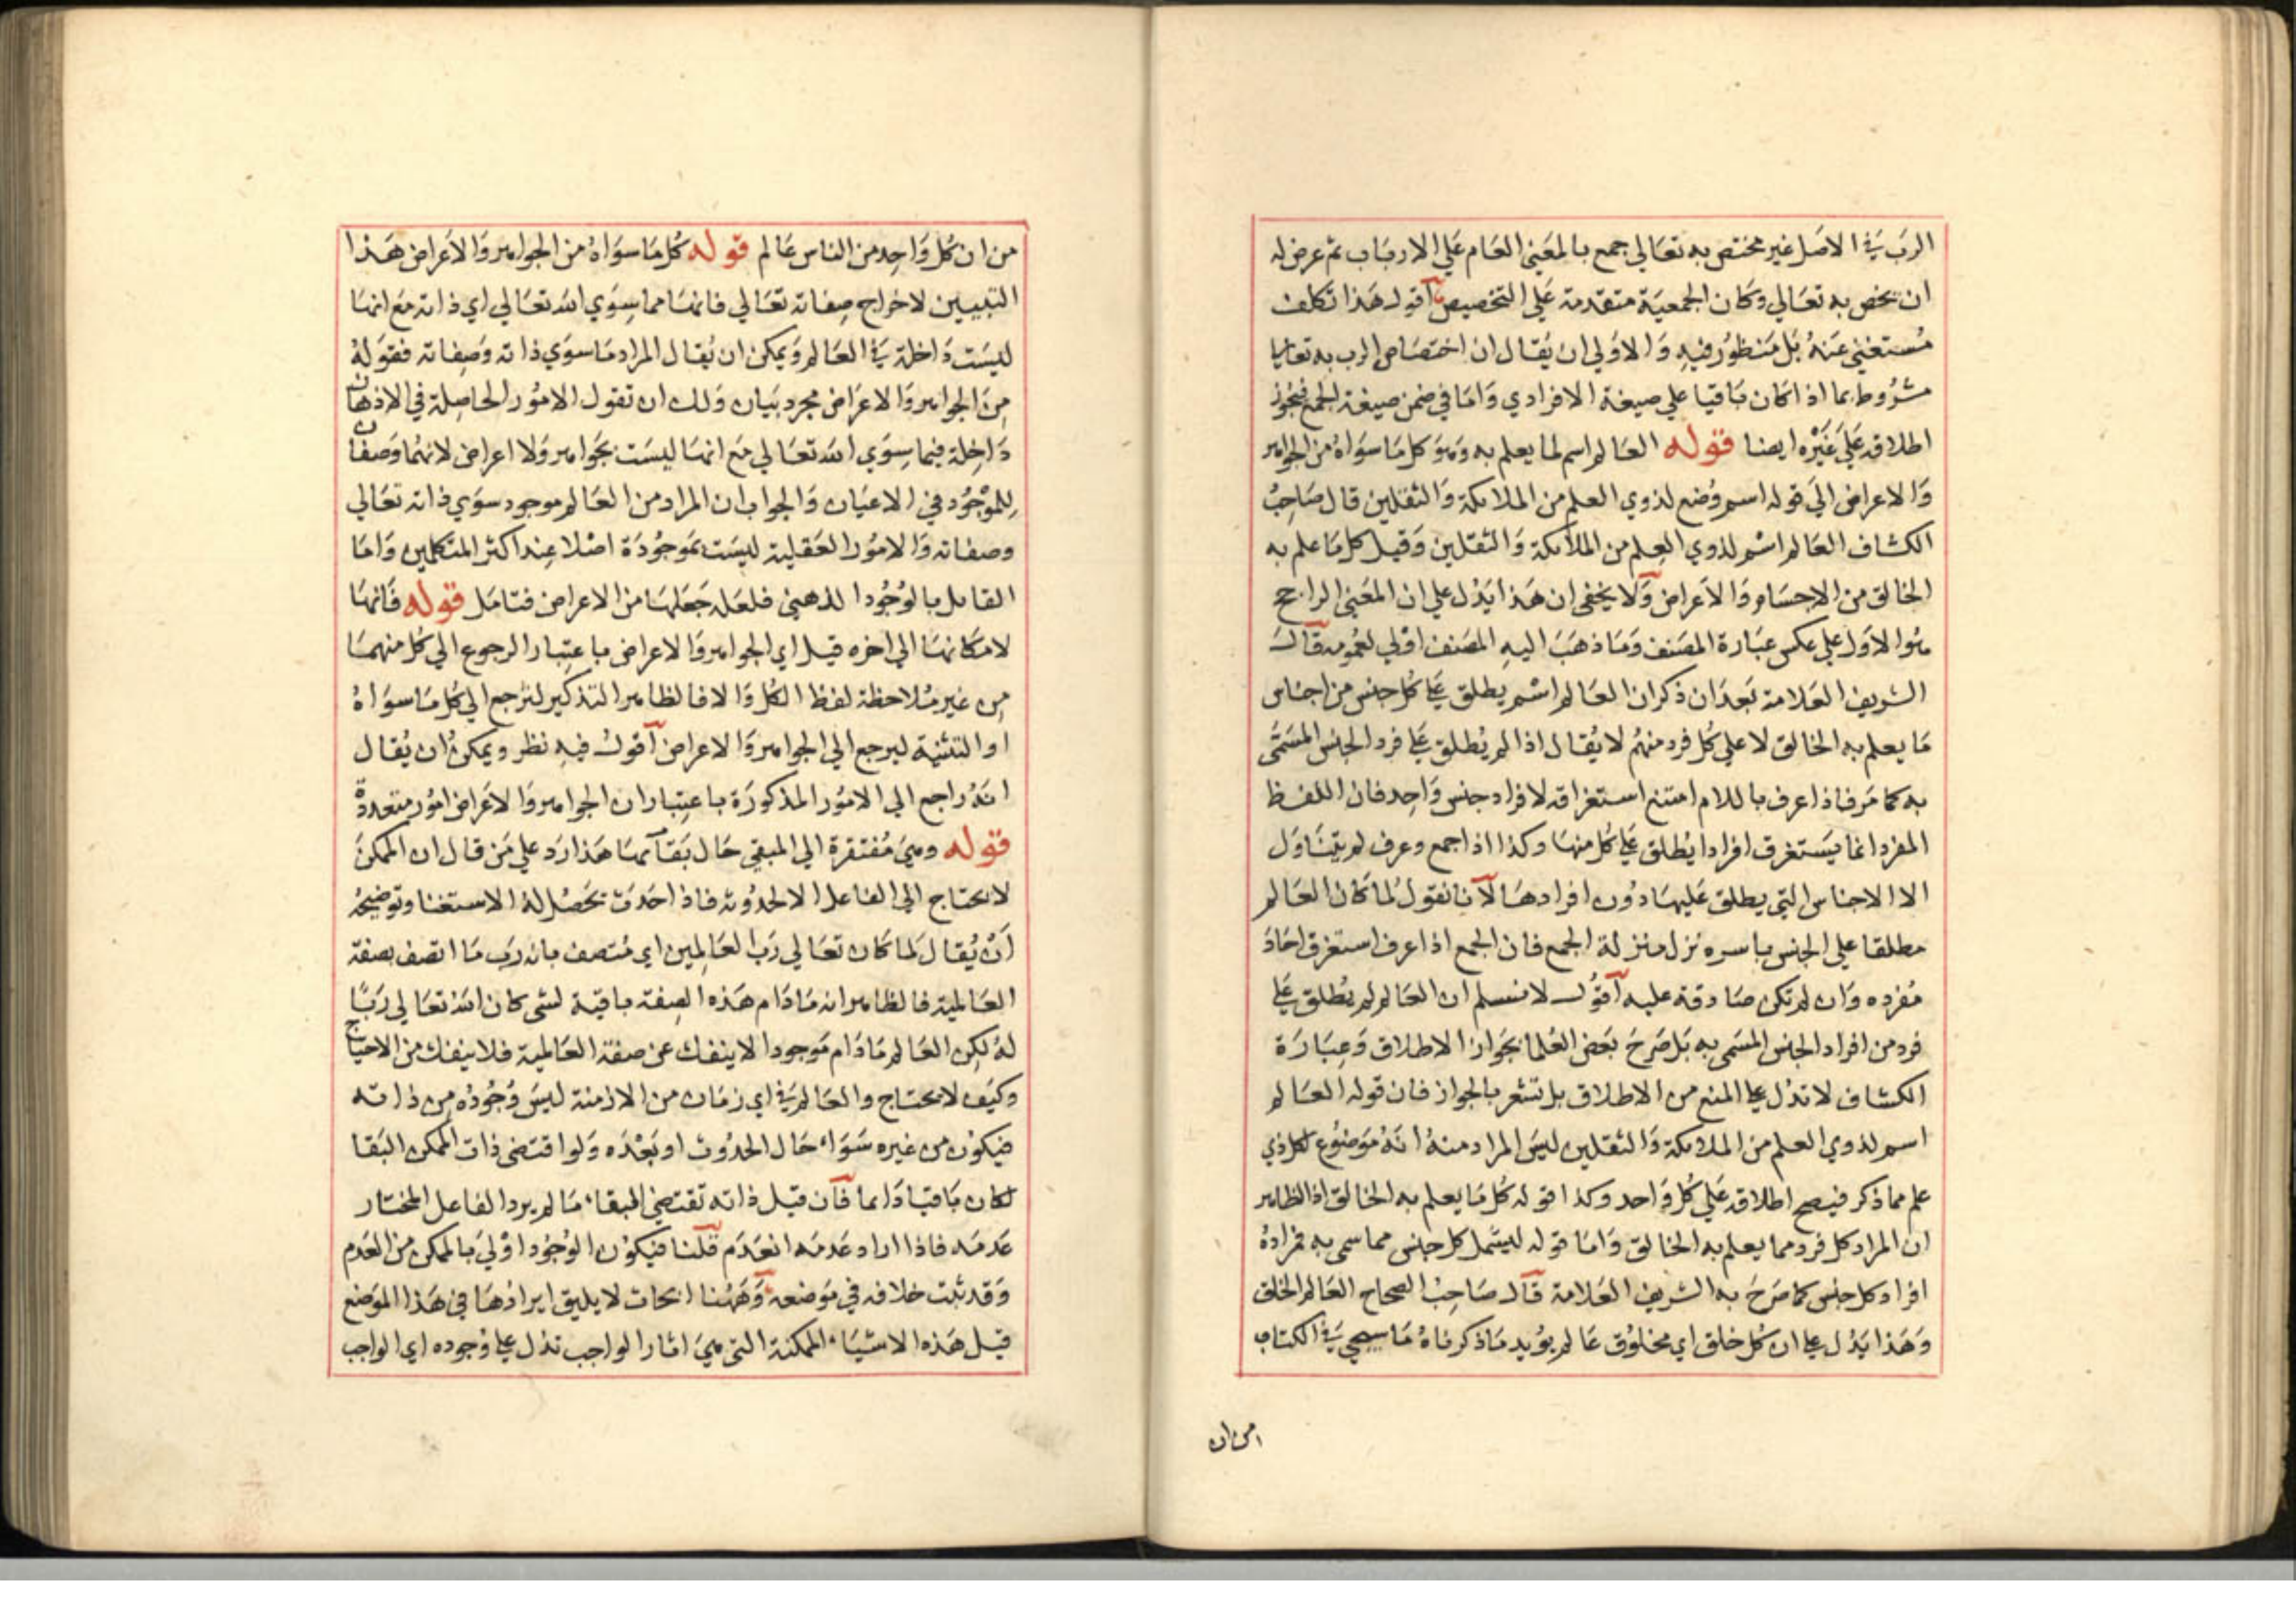 الرب في الاصل غير مختص به تعالي جمع بالمعني العام علي الارباب ثم عرض له
ان يخص به تعالي وكان الجمعية متقدمة علي التخصيص اقول هذا تكلف
مستغني عنه بل منظور فيه والاولي ان يقال ان اختصاص الرب به تعالي
مشروط بما اذا كان باقيا علي صيغة الافرادي واما في ضمن صيغة الجمع فيجوز
اطلاقه علي غيره ايضا قوله العالم اسم لما يعلم به وهو كل ما سواه من الجواهر
والاعراض الي قوله اسم وضع لذوي العلم من الملائكة والثقلين قال صاحب
الكشاف العالم اسم لذوي العلم من الملائكة والثقلين وقيل كل ما علم به
الخالق من الاجسام والاعراض ولا يخفي ان هذا يدل علي ان المعني الراجح
هو الاول علي عكس عبارة المصنف وما ذهب اليه المصنف اولي لعمومه قال
الشريف العلامة بعد ان ذكر ان العالم اسم يطلق علي كل جنس من اجناس
ما يعلم به الخالق لا علي كل فرد منهم لا يقال اذا لم يطلق علي فرد الجنس المسمي
به كما مر فاذا عرف باللام امتنع استغراقه لافراد جنس واحد فان اللفظ
المفرد انما يستغرق افرادا يطلق علي كل منها وكذا اذا جمع وعرف لم يتناول
الا الاجناس التي يطلق عليها دون افرادها لانا نقول لما كان العالم
مطلقا علي الجنس باسره نزل منزلة الجمع فان الجمع اذا عرف استغرق احاد
مفرده وان لم تكن صادقة عليه اقول لا نسلم ان العالم لم يطلق علي
فرد من افراد الجنس المسمي به بل صرح بعض العلما بجواز الاطلاق وعبارة
الكشاف لا تدل علي المنع من الاطلاق بل تشعر بالجواز فان قوله العالم
اسم لذوي العلم من الملائكة والثقلين ليس المراد منه انه موضوع لكل ذي
علم مما ذكر فيصح اطلاقه علي كل واحد وكذا قوله كل ما يعلم به الخالق اذ الظاهر
ان المراد كل فرد مما يعلم به الخالق واما قوله ليشمل كل جنس مما سمي به فمراده
افراد كل جنس كما صرح به الشريف العلامة قال صاحب الصحاح العالم الخلق
وهذا يدل علي ان كل خلق اي مخلوق عالم يؤيد ما ذكرناه ما سيجي في الكتاب
من ان
من ان كل واحد من الناس عالم قوله كل ما سواه من الجواهر والاعراض هذا
التبيين لاخراج صفاته تعالي فانها مما سوي الله تعالي اي ذاته مع انها
ليست داخلة في العالم ويمكن ان يقال المراد ما سوي ذاته وصفاته فقوله
من الجواهر والاعراض مجرد بيان ولك ان تقول الامور الحاصلة في الاذهان
داخلة فيما سوي الله تعالي مع انها ليست بجواهر ولا اعراض لانهما وصفان
للموجود في الاعيان والجواب ان المراد من العالم موجود سوي ذاته تعالي
وصفاته والامور العقلية ليست بموجودة اصلا عند اكثر المتكلمين واما
القايل بالوجود الذهني فلعله جعلها من الاعراض فتامل قوله فانها
لامكانها الي اخره قيل اي الجواهر والاعراض باعتبار الرجوع الي كل منهما
من غير ملاحظة لفظ الكل والا فالظاهر التذكير لترجع الي كل ما سواه
او التثنية ليرجع الي الجواهر والاعراض اقول فيه نظر ويمكن ان يقال
انه راجع الي الامور المذكورة باعتبار ان الجواهر والاعراض امور متعددة
قوله وهي مفتقرة الي المبقي حال بقائها هذا رد علي من قال ان الممكن
لا يحتاج الي الفاعل الا لحدوثه فاذا حدث يحصل له الاستغنا وتوضيحه
ان يقال لما كان تعالي رب العالمين اي متصف بانه رب ما اتصف بصفة
العالمية فالظاهر انه ما دام هذه الصفة باقية لشي كان الله تعالي ربا
له لكن العالم ما دام موجودا لا ينفك عن صفة العالمية فلا ينفك من الاحتياج
وكيف لا يحتاج والعالم في اي زمان من الازمنة ليس وجوده من ذاته
فيكون من غيره سواء حال الحدوث او بعده ولو اقتضي ذات الممكن البقا
لكان باقيا دايما فان قيل ذاته تقتضي البقاء ما لم يرد الفاعل المختار
عدمه فاذا اراد عدمه انعدم قلنا فيكون الوجود اولي بالممكن من العدم
وقد ثبت خلافه في موضعه وههنا ابحاث لا يليق ايرادها في هذا الموضع
قيل هذه الاشياء الممكنة التي هي اثار الواجب تدل علي وجوده اي الواجب